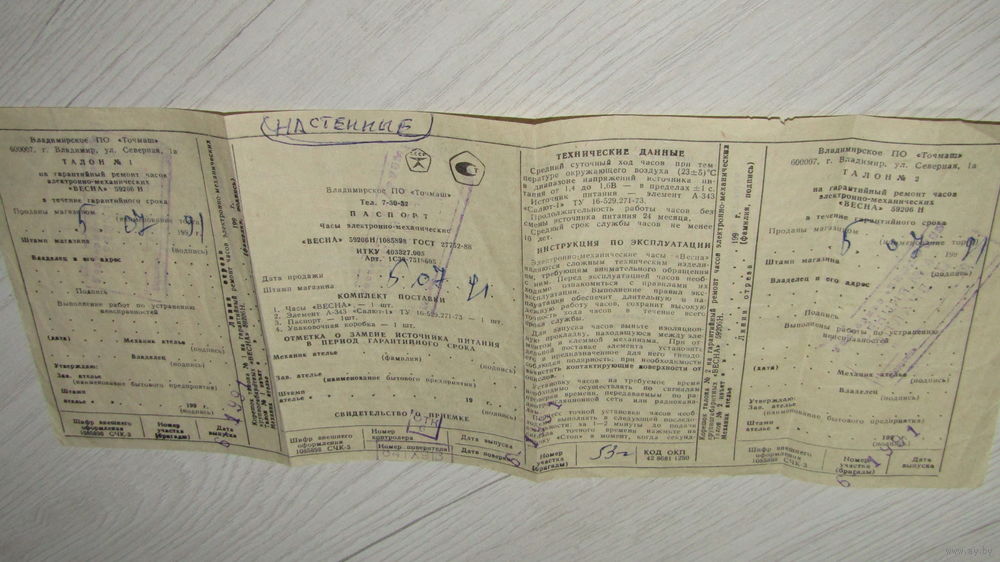 (НАСТЕННЫЕ)
Владимирское ПО «Точмаш»
600007, г. Владимир, ул. Северная, 1а
ТАЛОН № 1
на гарантийный ремонт часов
электронно-механических
«ВЕСНА» 59206 Н
в течение гарантийного срока
Проданы магазином
5 07 91
Штамп магазина
Владелец и его адрес
Подпись
Выполнение работ по устранению
неисправностей
(дата) Механик ателье
(подпись)
Владелец
(подпись)
Утверждаю:
Зав. ателье
(наименование бытового предприятия)
Штамп
ателье
199 г.
(подпись)
Шифр внешнего оформления
1085898 СЧК-3
Номер участка (бригады)
Дата выпуска
Линия отреза
Владимирское ПО «Точмаш»
Тел. 7-30-52
ПАСПОРТ
Часы электронно-механические
«ВЕСНА» 59206Н/1085898 ГОСТ 27752-88
Дата продажи
5.07 91
Штамп магазина
КОМПЛЕКТ ПОСТАВКИ
1. Часы «ВЕСНА» — 1 шт.
2. Элемент А-343 «Салют-1» ТУ 16-529.271-73 — 1 шт.
3. Паспорт — 1шт.
4. Упаковочная коробка — 1 шт.
ОТМЕТКА О ЗАМЕНЕ ИСТОЧНИКА ПИТАНИЯ
В ПЕРИОД ГАРАНТИЙНОГО СРОКА
Механик ателье
(фамилия)
Зав. ателье
(наименование бытового предприятия)
Штамп
ателье
19
(подпись)
СВИДЕТЕЛЬСТВО О ПРИЕМКЕ
ОТК
Шифр внешнего оформления
1085898 СЧК-3
Номер контролера
Номер поверителя
Дата выпуска
Дата поверки
ТЕХНИЧЕСКИЕ ДАННЫЕ
Средний суточный ход часов при тем-
пературе окружающего воздуха (23±5)°С
в диапазоне напряжений источника пи-
тания от 1,4 до 1,6В — в пределах ±1 с.
Источник питания — элемент А-343
«Салют-1» ТУ 16-529.271-73.
Продолжительность работы часов без
смены источника питания 24 месяца.
Средний срок службы часов не менее
10 лет.
ИНСТРУКЦИЯ ПО ЭКСПЛУАТАЦИИ
Электронно-механические часы «Весна»
являются сложным техническим издели-
ем, требующим внимательного обращения
с ним. Перед эксплуатацией часов необ-
ходимо ознакомиться с правилами их
эксплуатации. Выполнение правил экс-
плуатации обеспечит длительную и на-
дежную работу часов, сохранит высокую
точность хода часов в течение всего
срока службы.
Для запуска часов выньте изоляцион-
ную прокладку, находящуюся между эле-
ментом и клеммой механизма. При от-
дельной поставке элемента установить
его в предназначенное для него гнездо,
соблюдая полярность; при необходимости
зачистить контактирующие поверхности от
окислов.
Установку часов на требуемое время
необходимо осуществлять по сигналам
проверки времени, передаваемым по ра-
диотрансляционной сети или радиокана-
точной установки часов необ-
выполнить в следующей последо-
за 1—2 минуты до подачи
точного времени нажмите на
«Стоп» в момент, когда секунд-
Номер участка (бригады)
53г
КОД ОКП
42 8681 1250
Линия отреза
199 г.
(фамилия, подпись)
Владимирское ПО «Точмаш»
600007, г. Владимир, ул. Северная, 1а
ТАЛОН № 2
на гарантийный ремонт часов
электронно-механических
«ВЕСНА» 59206 Н
в течение гарантийного срока
Проданы магазином
5 07 91
Штамп магазина
(подпись)
Владелец и его адрес
Подпись
Выполнены работы по устранению
неисправностей
(дата)
Механик ателье
(подпись)
Владелец
(подпись)
Утверждаю:
Зав. ателье
(наименование бытового предприятия)
Штамп
ателье
199
(подпись)
Шифр внешнего оформления
1085898 СЧК-3
Номер участка (бригады)
Дата выпуска
6 1991
www.ay.by